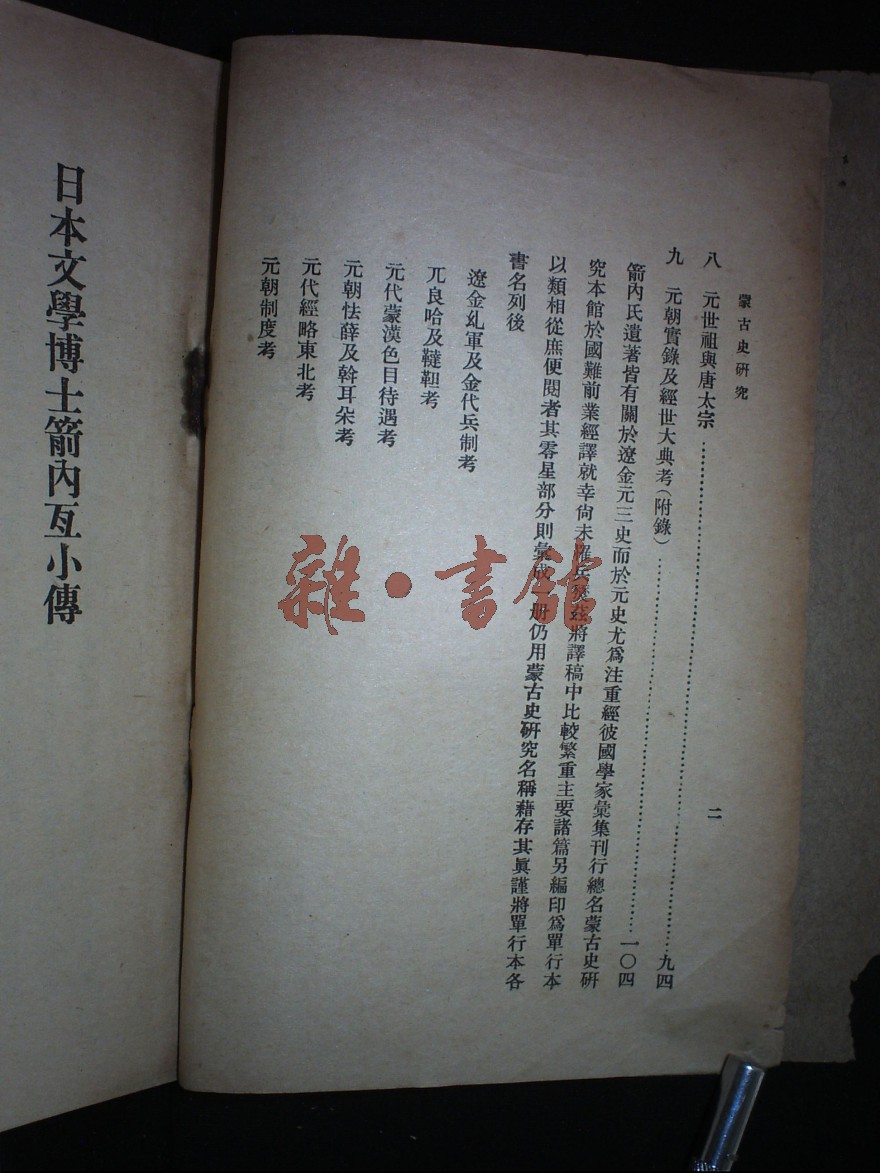 蒙古史研究
二
八 元世祖與唐太宗……九四
九 元朝實錄及經世大典考(附錄)……一〇四
箭內氏遺著皆有關於遼金元三史而於元史尤爲注重經彼國學家彙集刊行總名蒙古史研
究本館於國難前業經譯就幸尙未罹兵燹茲將譯稿中比較繁重主要諸篇另編印爲單行本
以類相從庶便閱者其零星部分則彙成一册仍用蒙古史研究名稱藉存其眞謹將單行本各
書名列後
遼金乣軍及金代兵制考
兀良哈及韃靼考
元代蒙漢色目待遇考
元朝怯薛及斡耳朵考
元代經略東北考
元朝制度考
日本文學博士箭內亙小傳
雜·書館